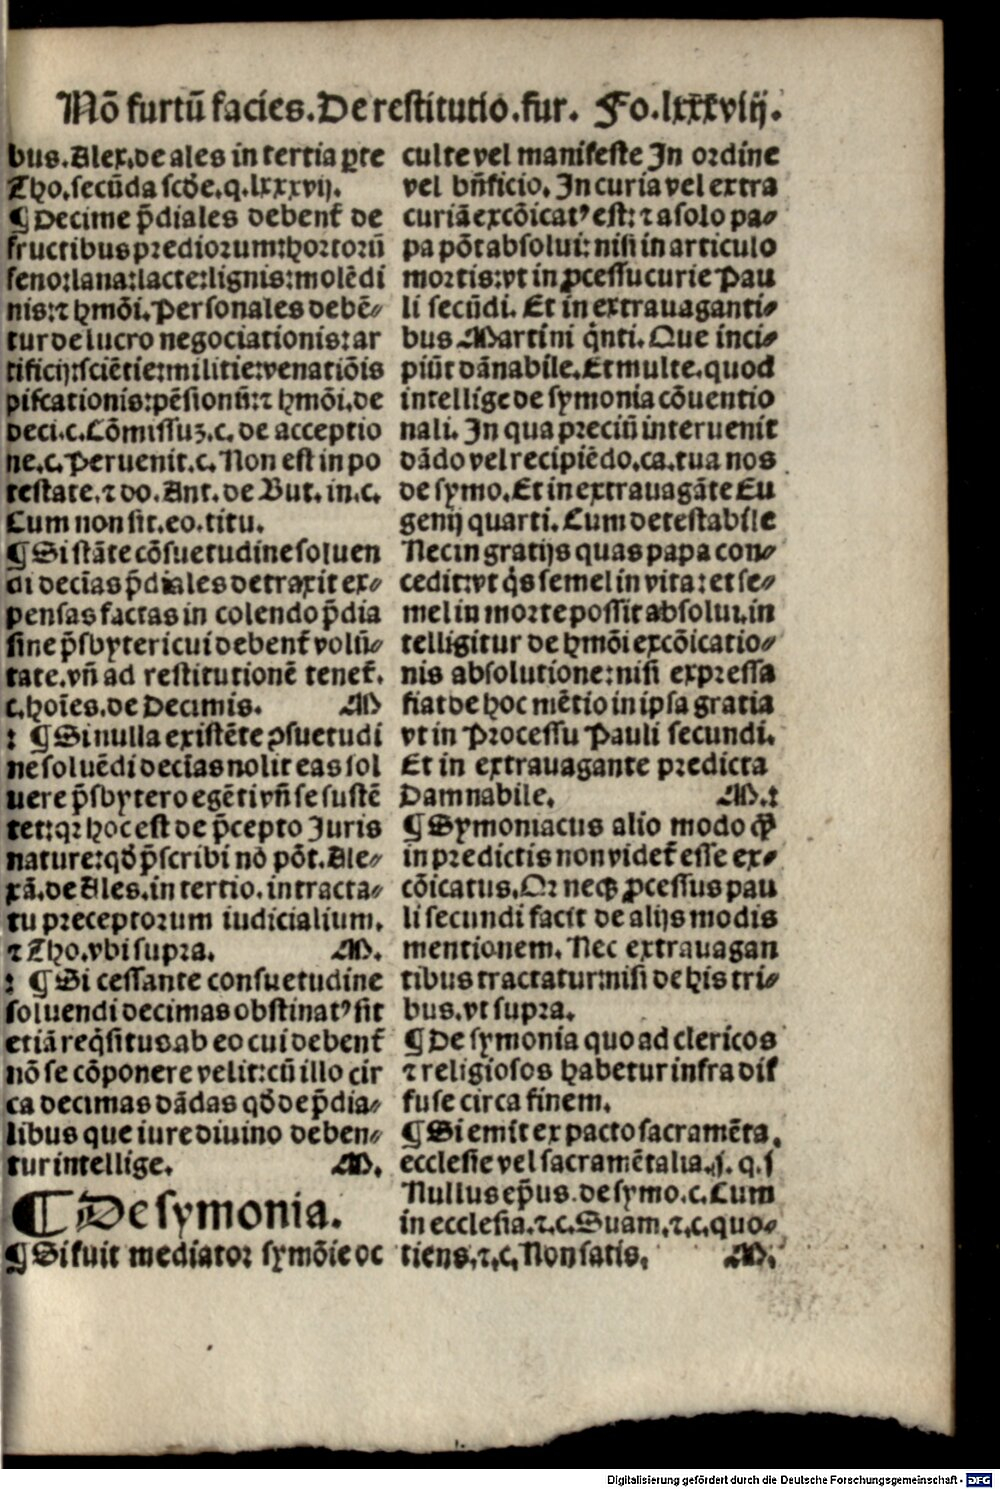 Nõ furtũ facies. De restitutio. fur. Fo. lxxxviij.
bus. Alex. de ales in tertia ꝑte
Tho. secũda scđe. q. lxxxvij.
¶ Decime p̃diales debent̃ de
fructibus prediorum: hortorũ
feno: lana: lacte: lignis: molẽdi
nis: ⁊ hmõi. Personales debẽ⸗
tur de lucro negociationis: ar
tificij: sciẽtie: militie: venatiõis
piscationis: pẽsionũ: ⁊ hmõi. de
deci. c. Cõmissuꝫ. c. de acceptio
ne. c. Peruenit. c. Non est in po
testate. ⁊ do. Ant. de But. in. c.
Cum non sit. eo. titu.
¶ Si stãte cõsuetudine soluen
di decĩas p̃diales detraxit ex⸗
pensas factas in colendo p̃dia
sine p̃sbyteri cui debent̃ volũ⸗
tate. vñ ad restitutionẽ tenet̃.
c. hoĩes. de Decimis. M
: ¶ Si nulla existẽte ꝯsuetudi
ne soluẽdi decĩas nolit eas sol
uere p̃sbytero egẽti vñ se sustẽ
tet: qꝛ hoc est de p̃cepto Juris
nature: qđ p̃scribi nõ põt. Ale⸗
xã. de Ales. in tertio. in tracta⸗
tu preceptorum iudicialium.
⁊ Tho. vbi supra. M.
: ¶ Si cessante consuetudine
soluendi decimas obstinatꝰ sit
etiã req̃situs ab eo cui debent̃
nõ se cõponere velit: cũ illo cir
ca decimas dãdas qđ de p̃dia⸗
libus que iure diuino deben⸗
tur intellige. M.
¶ De symonia.
¶ Si fuit mediator symõie oc
culte vel manifeste In ordine
vel bñficio. In curia vel extra
curiã excõicatꝰ est: ⁊ a solo pa⸗
pa põt absolui: nisi in articulo
mortis: vt in ꝓcessu curie Pau
li secũdi. Et in extrauaganti⸗
bus Martini q̃nti. Que inci⸗
piũt dãnabile. Et multe. quod
intellige de symonia cõuentio
nali. In qua preciũ interuenit
dãdo vel recipiẽdo. ca. tua nos
de symo. Et in extrauagãte Eu
genij quarti. Cum detestabile
Nec in gratijs quas papa con⸗
cedit: vt q̃s semel in vita: et se⸗
mel in morte possit absolui. in
telligitur de hmõi excõicatio⸗
nis absolutione: nisi expressa
fiat de hoc mẽtio in ipsa gratia
vt in Processu Pauli secundi.
Et in extrauagante predicta
Damnabile. M. :
¶ Symoniacus alio modo ꝙ̃
in predictis non videt̃ esse ex⸗
cõicatus. Qr neqꝫ ꝓcessus pau
li secundi facit de alijs modis
mentionem. Nec extrauagan
tibus tractatur: nisi de his tri⸗
bus. vt supra.
¶ De symonia quo ad clericos
⁊ religiosos habetur infra dif
fuse circa finem.
¶ Si emit ex pacto sacramẽta.
ecclesie vel sacramẽtalia. j. q. j
Nullus ep̃us. de symo. c. Cum
in ecclesia. ⁊. c. Suam. ⁊. c. quo⸗
tiens. ⁊. c. Non satis. M.
Digitalisierung gefördert durch die Deutsche Forschungsgemeinschaft - DFG